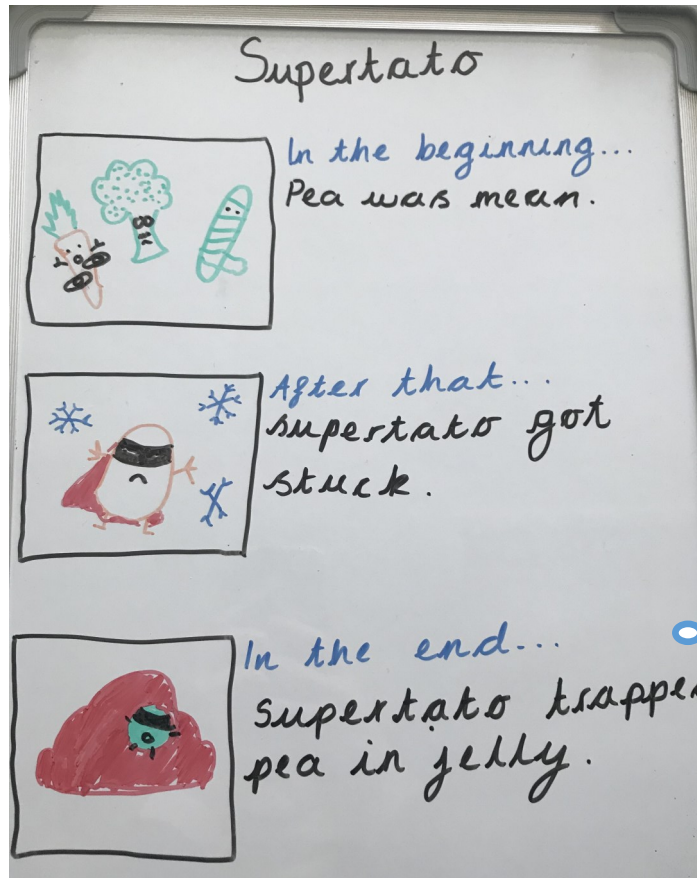 Supertato
In the beginning...
Pea was mean.
After that...
supertato got
stuck.
In the end...
supertato trappe
pea in jelly.